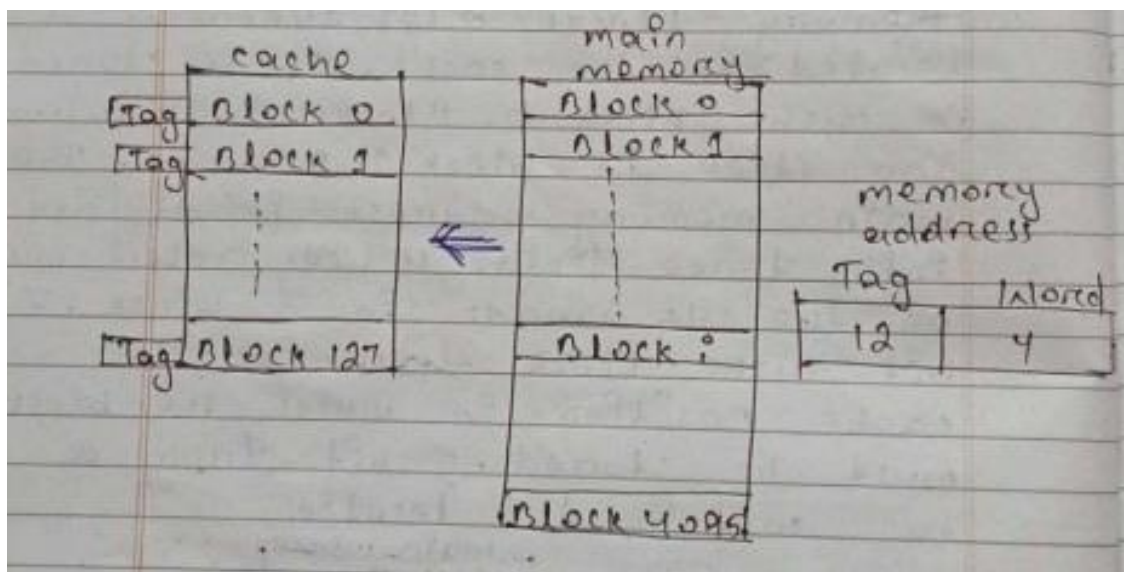 cache
Tag Block 0
Tag Block 1
Tag Block 127
main
memory
Block 0
Block 1
Block i
Block 4095
memory
address
Tag Word
12 4